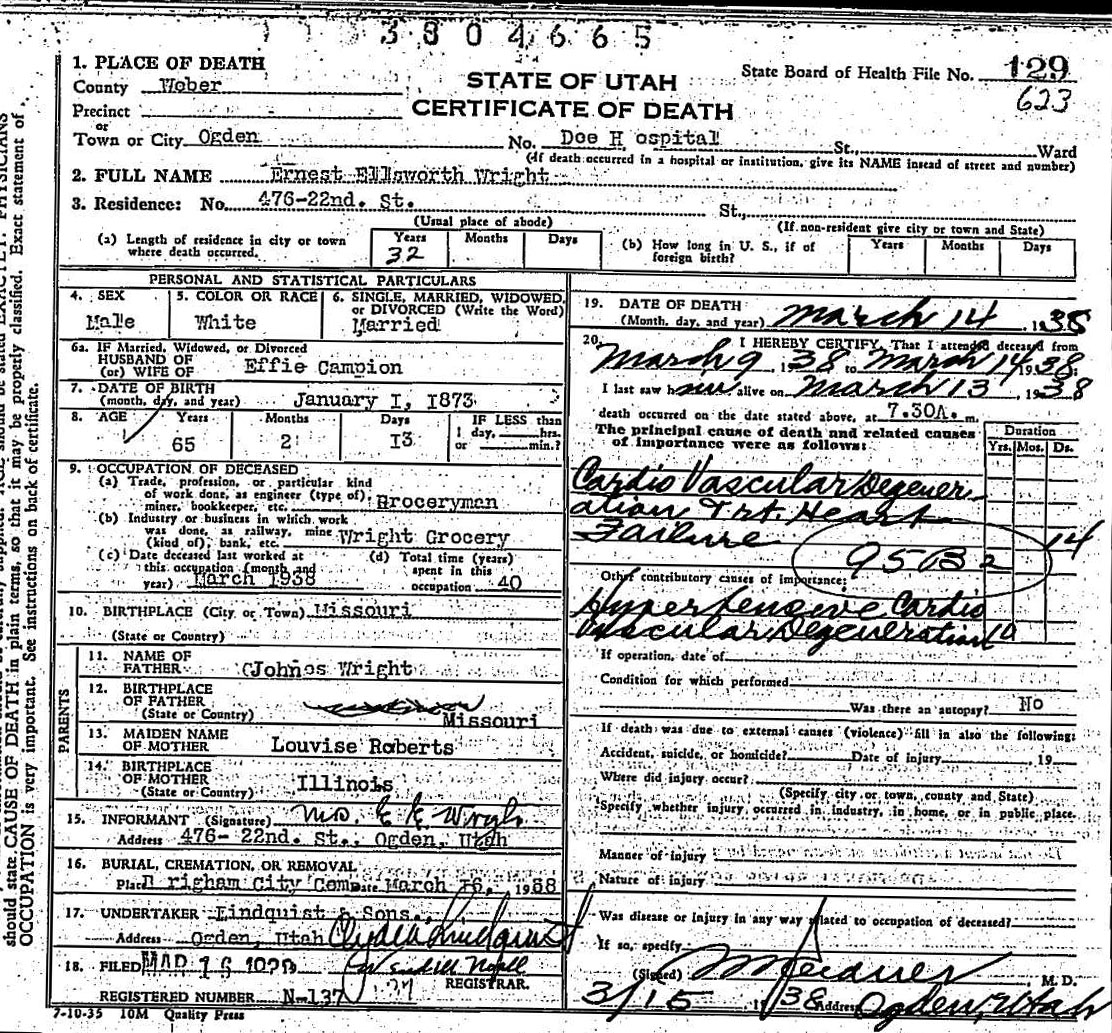 3804665
1. PLACE OF DEATH
County Weber
Precinct
or
Town or City Ogden No. Dee H ospital St., Ward
STATE OF UTAH
CERTIFICATE OF DEATH
State Board of Health File No. 129
623
(If death occurred in a hospital or institution, give its NAME instead of street and number)
2. FULL NAME Ernest Ellsworth Wright
3. Residence: No. 476-22nd. St. St.,
(Usual place of abode) (If non-resident give city or town and State)
(a) Length of residence in city or town where death occurred. Years 32 Months Days
(b) How long in U. S., if of foreign birth? Years Months Days
PERSONAL AND STATISTICAL PARTICULARS
4. SEX Male
5. COLOR OR RACE White
6. SINGLE, MARRIED, WIDOWED, or DIVORCED (Write the Word) Married
6a. IF Married, Widowed, or Divorced
HUSBAND OF
(or) WIFE OF Effie Campion
7. DATE OF BIRTH
(month, day, and year) January I, I873
8. AGE Years 65 Months 2 Days I3 IF LESS than 1 day, hrs. or min.?
9. OCCUPATION OF DECEASED
(a) Trade, profession, or particular kind
of work done, as engineer (type of),
miner, bookkeeper, etc. Groceryman
(b) Industry or business in which work
was done, as railway, mine
(kind of), bank, etc. Wright Grocery
(c) Date deceased last worked at
this occupation (month and
year) March 1938
(d) Total time (years)
spent in this
occupation 40
10. BIRTHPLACE (City or Town) Missouri
(State or Country)
PARENTS
11. NAME OF
FATHER Wright
12. BIRTHPLACE
OF FATHER
(State or Country) Missouri
13. MAIDEN NAME
OF MOTHER Louvise Roberts
14. BIRTHPLACE
OF MOTHER
(State or Country) Illinois
15. INFORMANT (Signature)
Address 476- 22nd. St., Ogden, Utah
16. BURIAL, CREMATION, OR REMOVAL
Place B righam City Cem Date March I6, 1938
17. UNDERTAKER Lindquist & Sons.,
Address Ogden, Utah
18. FILED MAR 16
REGISTRAR.
REGISTERED NUMBER N-137
7-10-35 10M Quality Press
19. DATE OF DEATH
(Month, day, and year) March 14, 1938
20. I HEREBY CERTIFY, That I attended deceased from
March 9 1938 to March 14 1938
I last saw him alive on March 13, 1938
death occurred on the date stated above, at 7.30A. m.
The principal cause of death and related causes
of importance were as follows:
Duration
Yrs. Mos. Ds.
Cardio Vascular Degener
ation Heart
Failure 14
95B2
Other contributory causes of importance:
Hypertensive Cardio
Vascular Degeneration 10
If operation, date of
Condition for which performed
Was there an autopsy? No
If death was due to external causes (violence) fill in also the following:
Accident, suicide, or homicide? Date of injury , 19
Where did injury occur?
(Specify city or town, county and State)
Specify whether injury, occurred in industry, in home, or in public place.
Manner of injury
Nature of injury
Was disease or injury in any way related to occupation of deceased?
If so, specify
(Signed) M. D.
3/15 1938 Address Ogden, Utah
should state CAUSE OF DEATH in plain terms, so that it may be properly classified. Exact statement of
OCCUPATION is very important. See instructions on back of certificate.